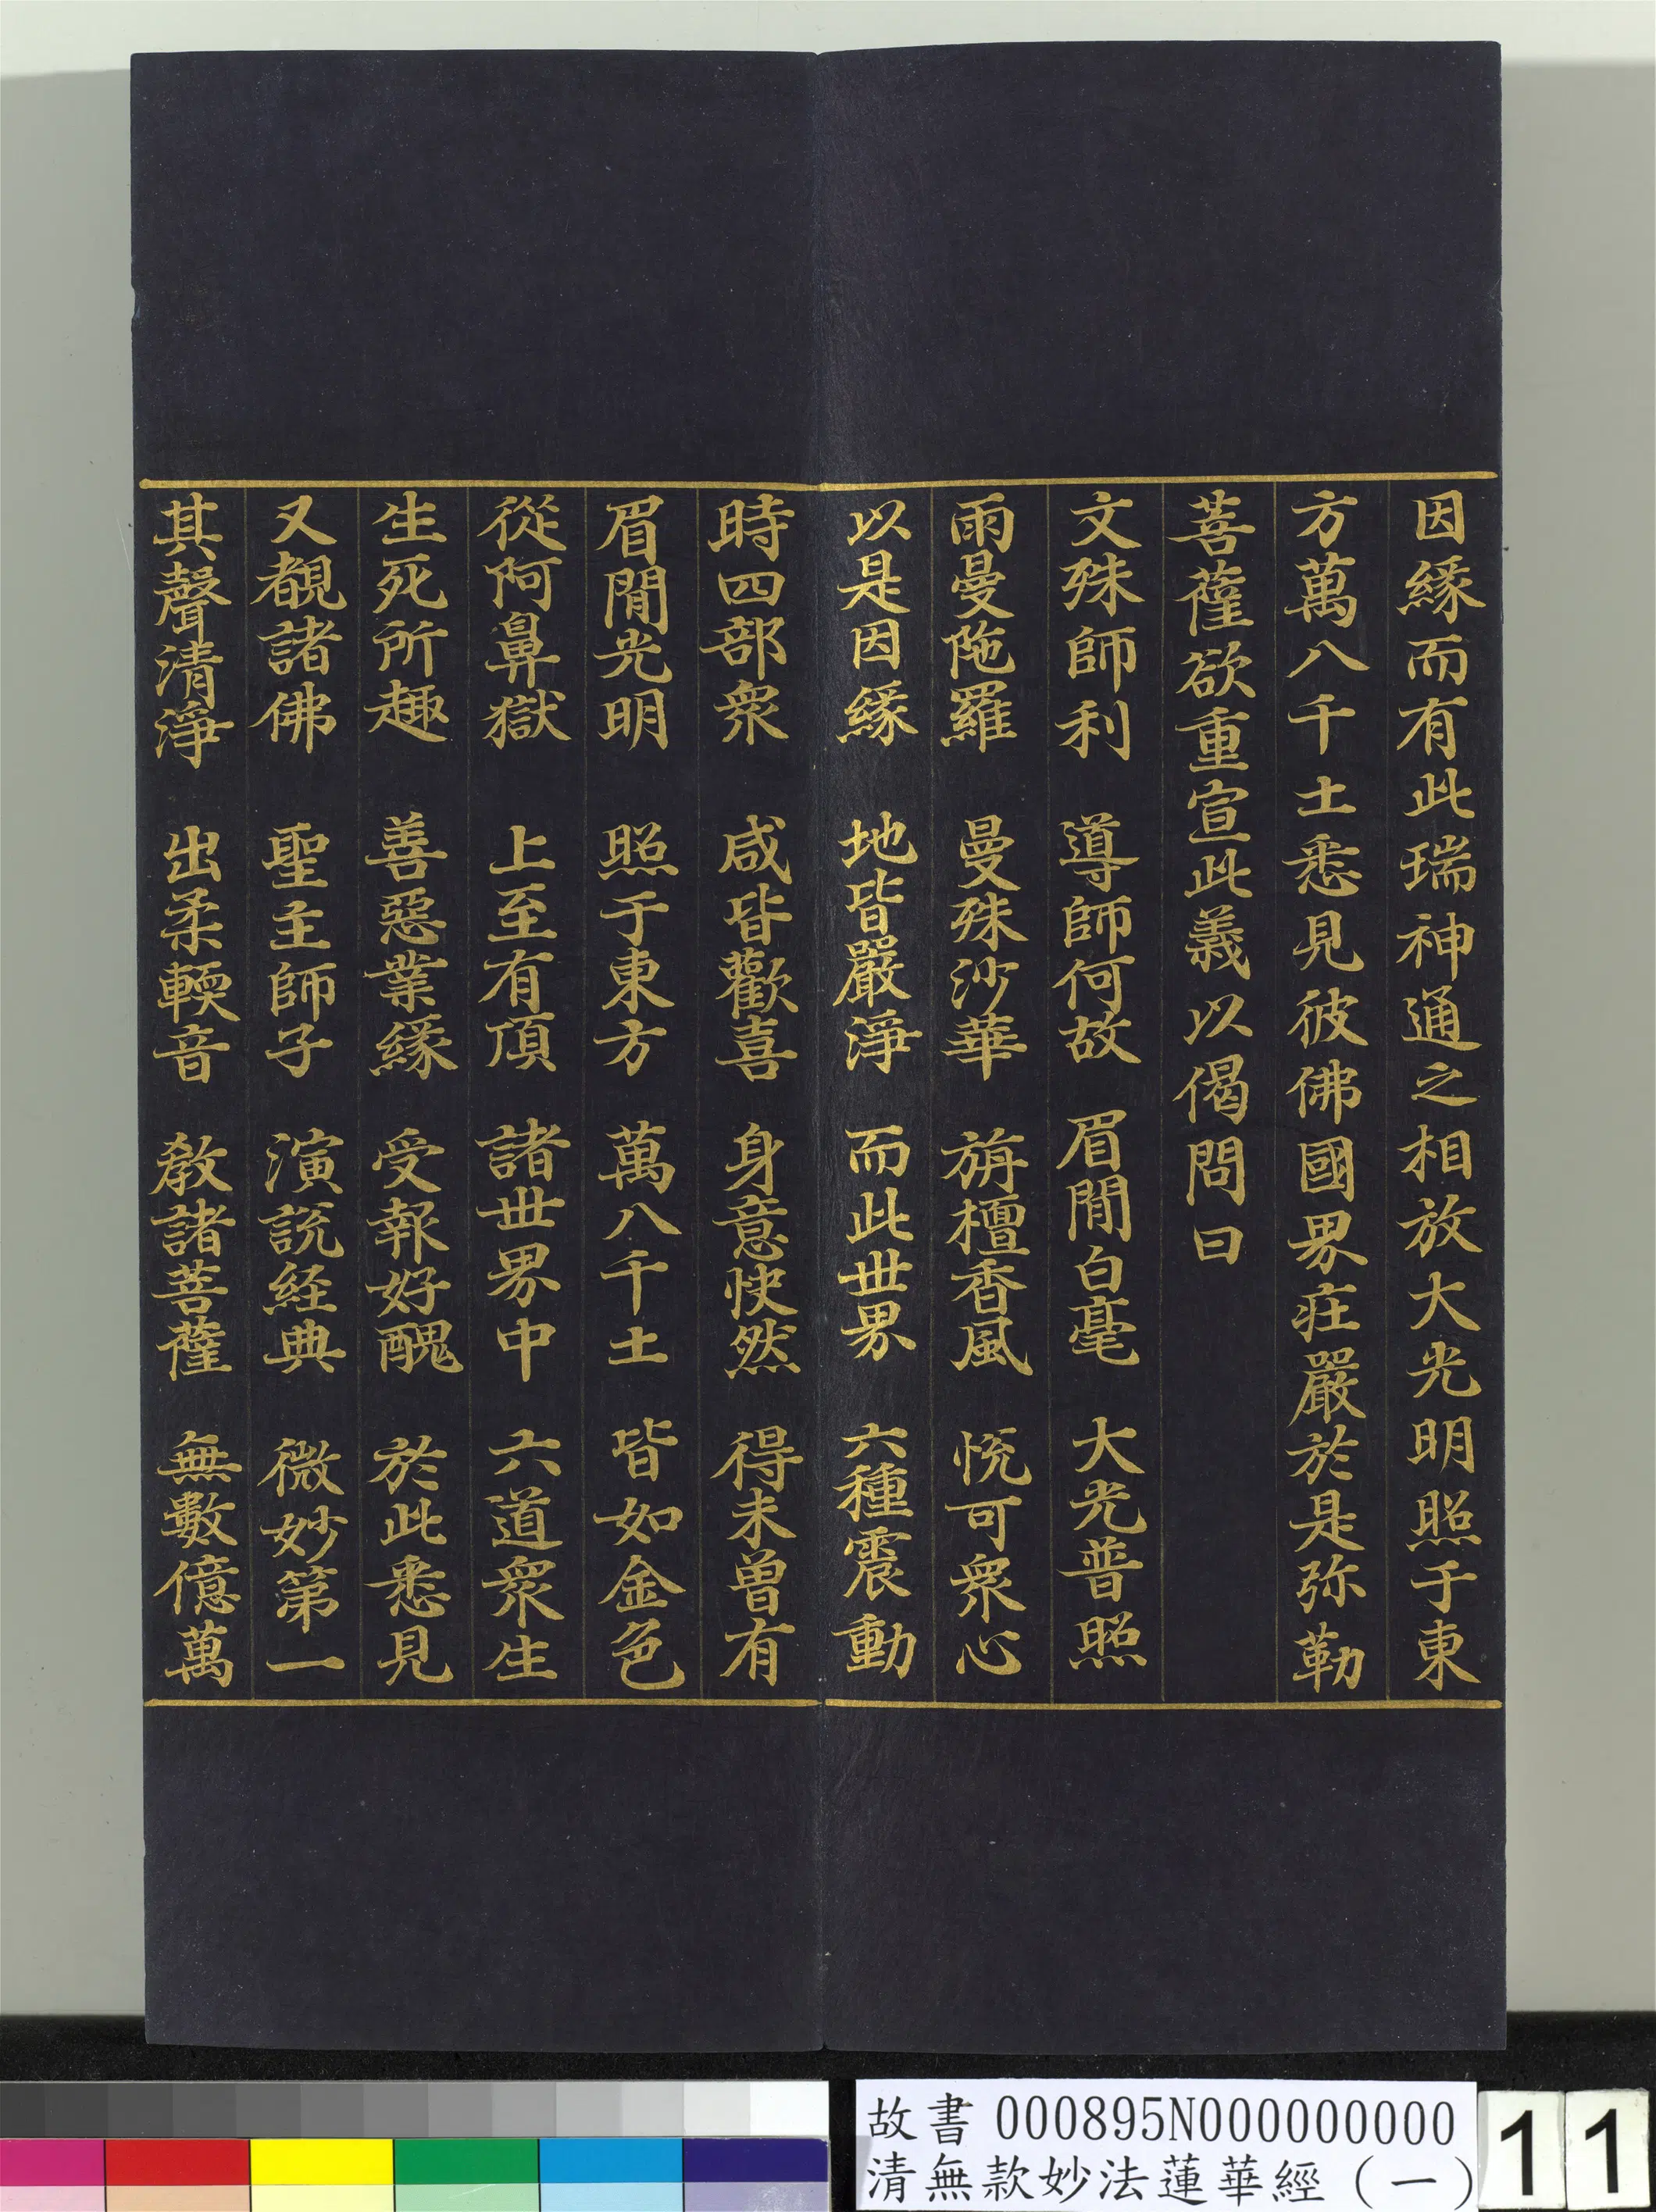 因緣而有此瑞神通之相放大光明照于東
方萬八千土悉見彼佛國界莊嚴於是弥勒
菩薩欲重宣此義以偈問曰
文殊師利　導師何故　眉閒白毫　大光普照
雨曼陁羅　曼殊沙華　旃檀香風　悅可衆心
以是因緣　地皆嚴淨　而此世界　六種震動
時四部衆　咸皆歡喜　身意快然　得未曽有
眉閒光明　照于東方　萬八千土　皆如金色
從阿鼻獄　上至有頂　諸世界中　六道衆生
生死所趣　善惡業緣　受報好醜　於此悉見
又覩諸佛　聖主師子　演說経典　微妙第一
其聲清淨　出柔輭音　教諸菩薩　無數億萬
故書 000895N000000000
清無款妙法蓮華經（一）
11